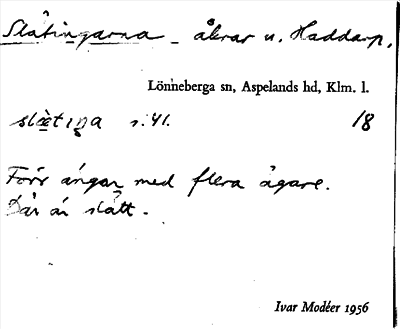 Slätingarna - åkrar u. Haddarp.
Lönneberga sn, Aspelands hd, Klm. l.
slæ̀tiŋa s. 41. 18
Förr ängar med flera ägare.
Där är slätt.
Ivar Modéer 1956